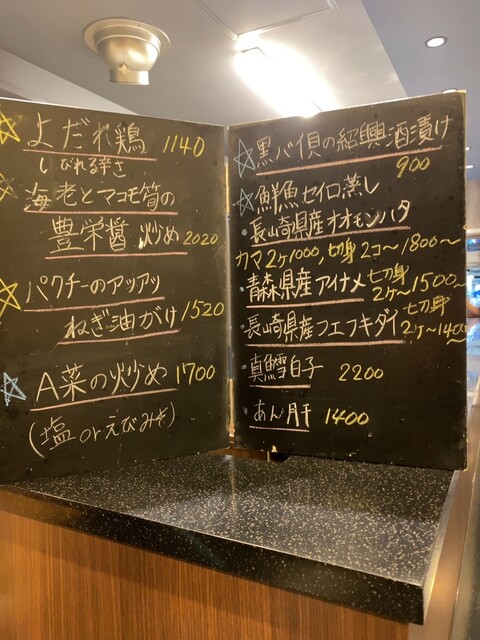 よだれ鶏 1140
しびれる辛さ
海老とマコモ筍の
豊栄醤炒め 2020
パクチーのアツアツ
ねぎ油がけ 1520
A菜の炒め 1700
(塩orえびみそ)
黒バイ貝の紹興酒漬け
900
鮮魚セイロ蒸し
・長崎県産オオモンハタ
カマ2ケ1000、切身2コ〜1800〜
・青森県産アイナメ 切身2ケ〜1500〜
・長崎県産フエフキダイ 切身2ケ〜1400〜
・真鱈白子 2200
・あん肝 1400